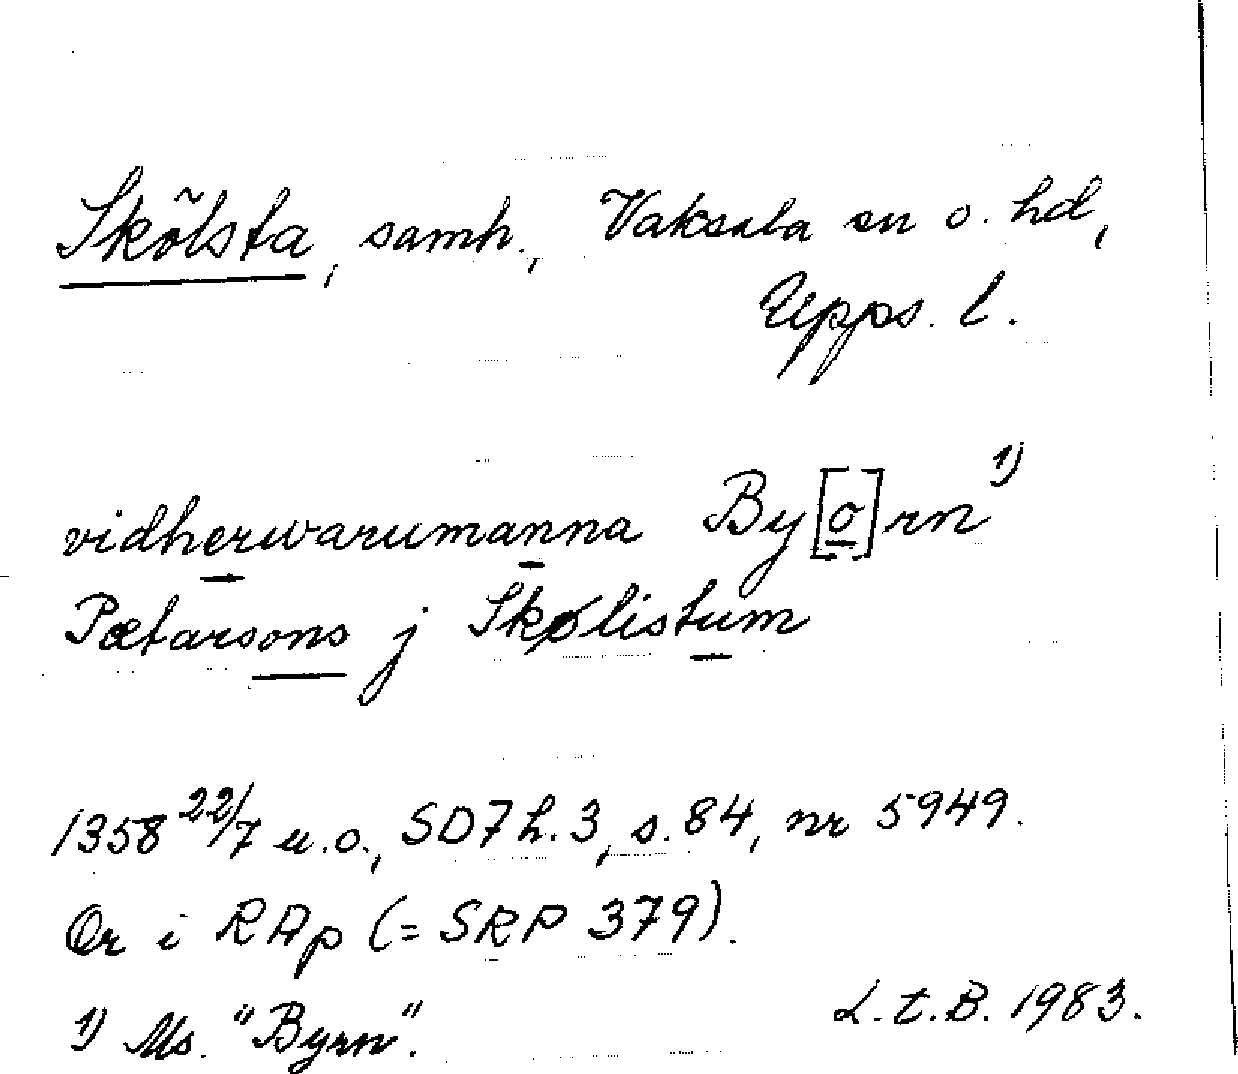 Skölsta, samh., Vaksala sn o. hd,
Upps. l.
vidherwarumanna By[o]rn 1)
Pætarsons j Skølistum
1358 22/7 u.o., SD7 h.3, s.84, nr 5949.
Or i RAp (= SRP 379).
1) Ms. "Byrn".
L.t.B. 1983.